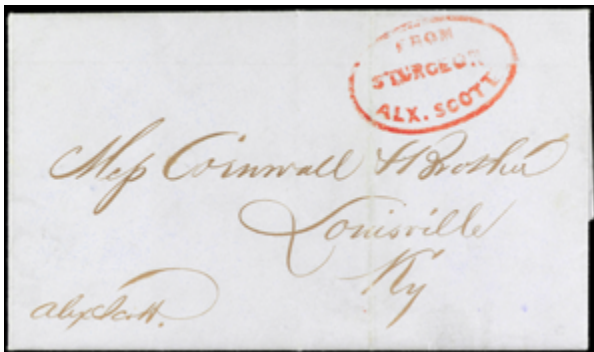 FROM
STURGEON
ALX. SCOTT
Mess Cornwall & Brother
Louisville
Ky
Alex Scott.